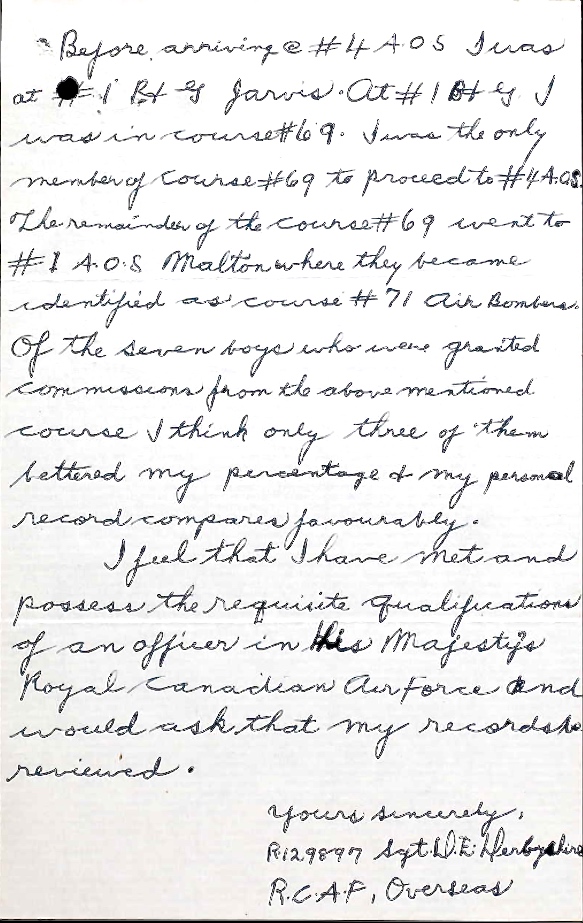 Before arriving @ #4 A.O.S I was
at #1 B+G Jarvis. At #1 B+G I
was in course #69. I was the only
member of Course #69 to proceed to #4 A.O.S.
The remainder of the course #69 went to
#1 A.O.S Malton where they became
identified as course #71 Air Bombers.
Of the seven boys who were granted
commissions from the above mentioned
course I think only three of them
bettered my percentage & my personal
record compares favourably.
I feel that I have met and
possess the requisite qualifications
of an officer in His Majesty's
Royal Canadian Air Force and
would ask that my records be
reviewed.
Yours sincerely,
R129897 Sgt. D.E. Derbyshire
R.C.A.F, Overseas